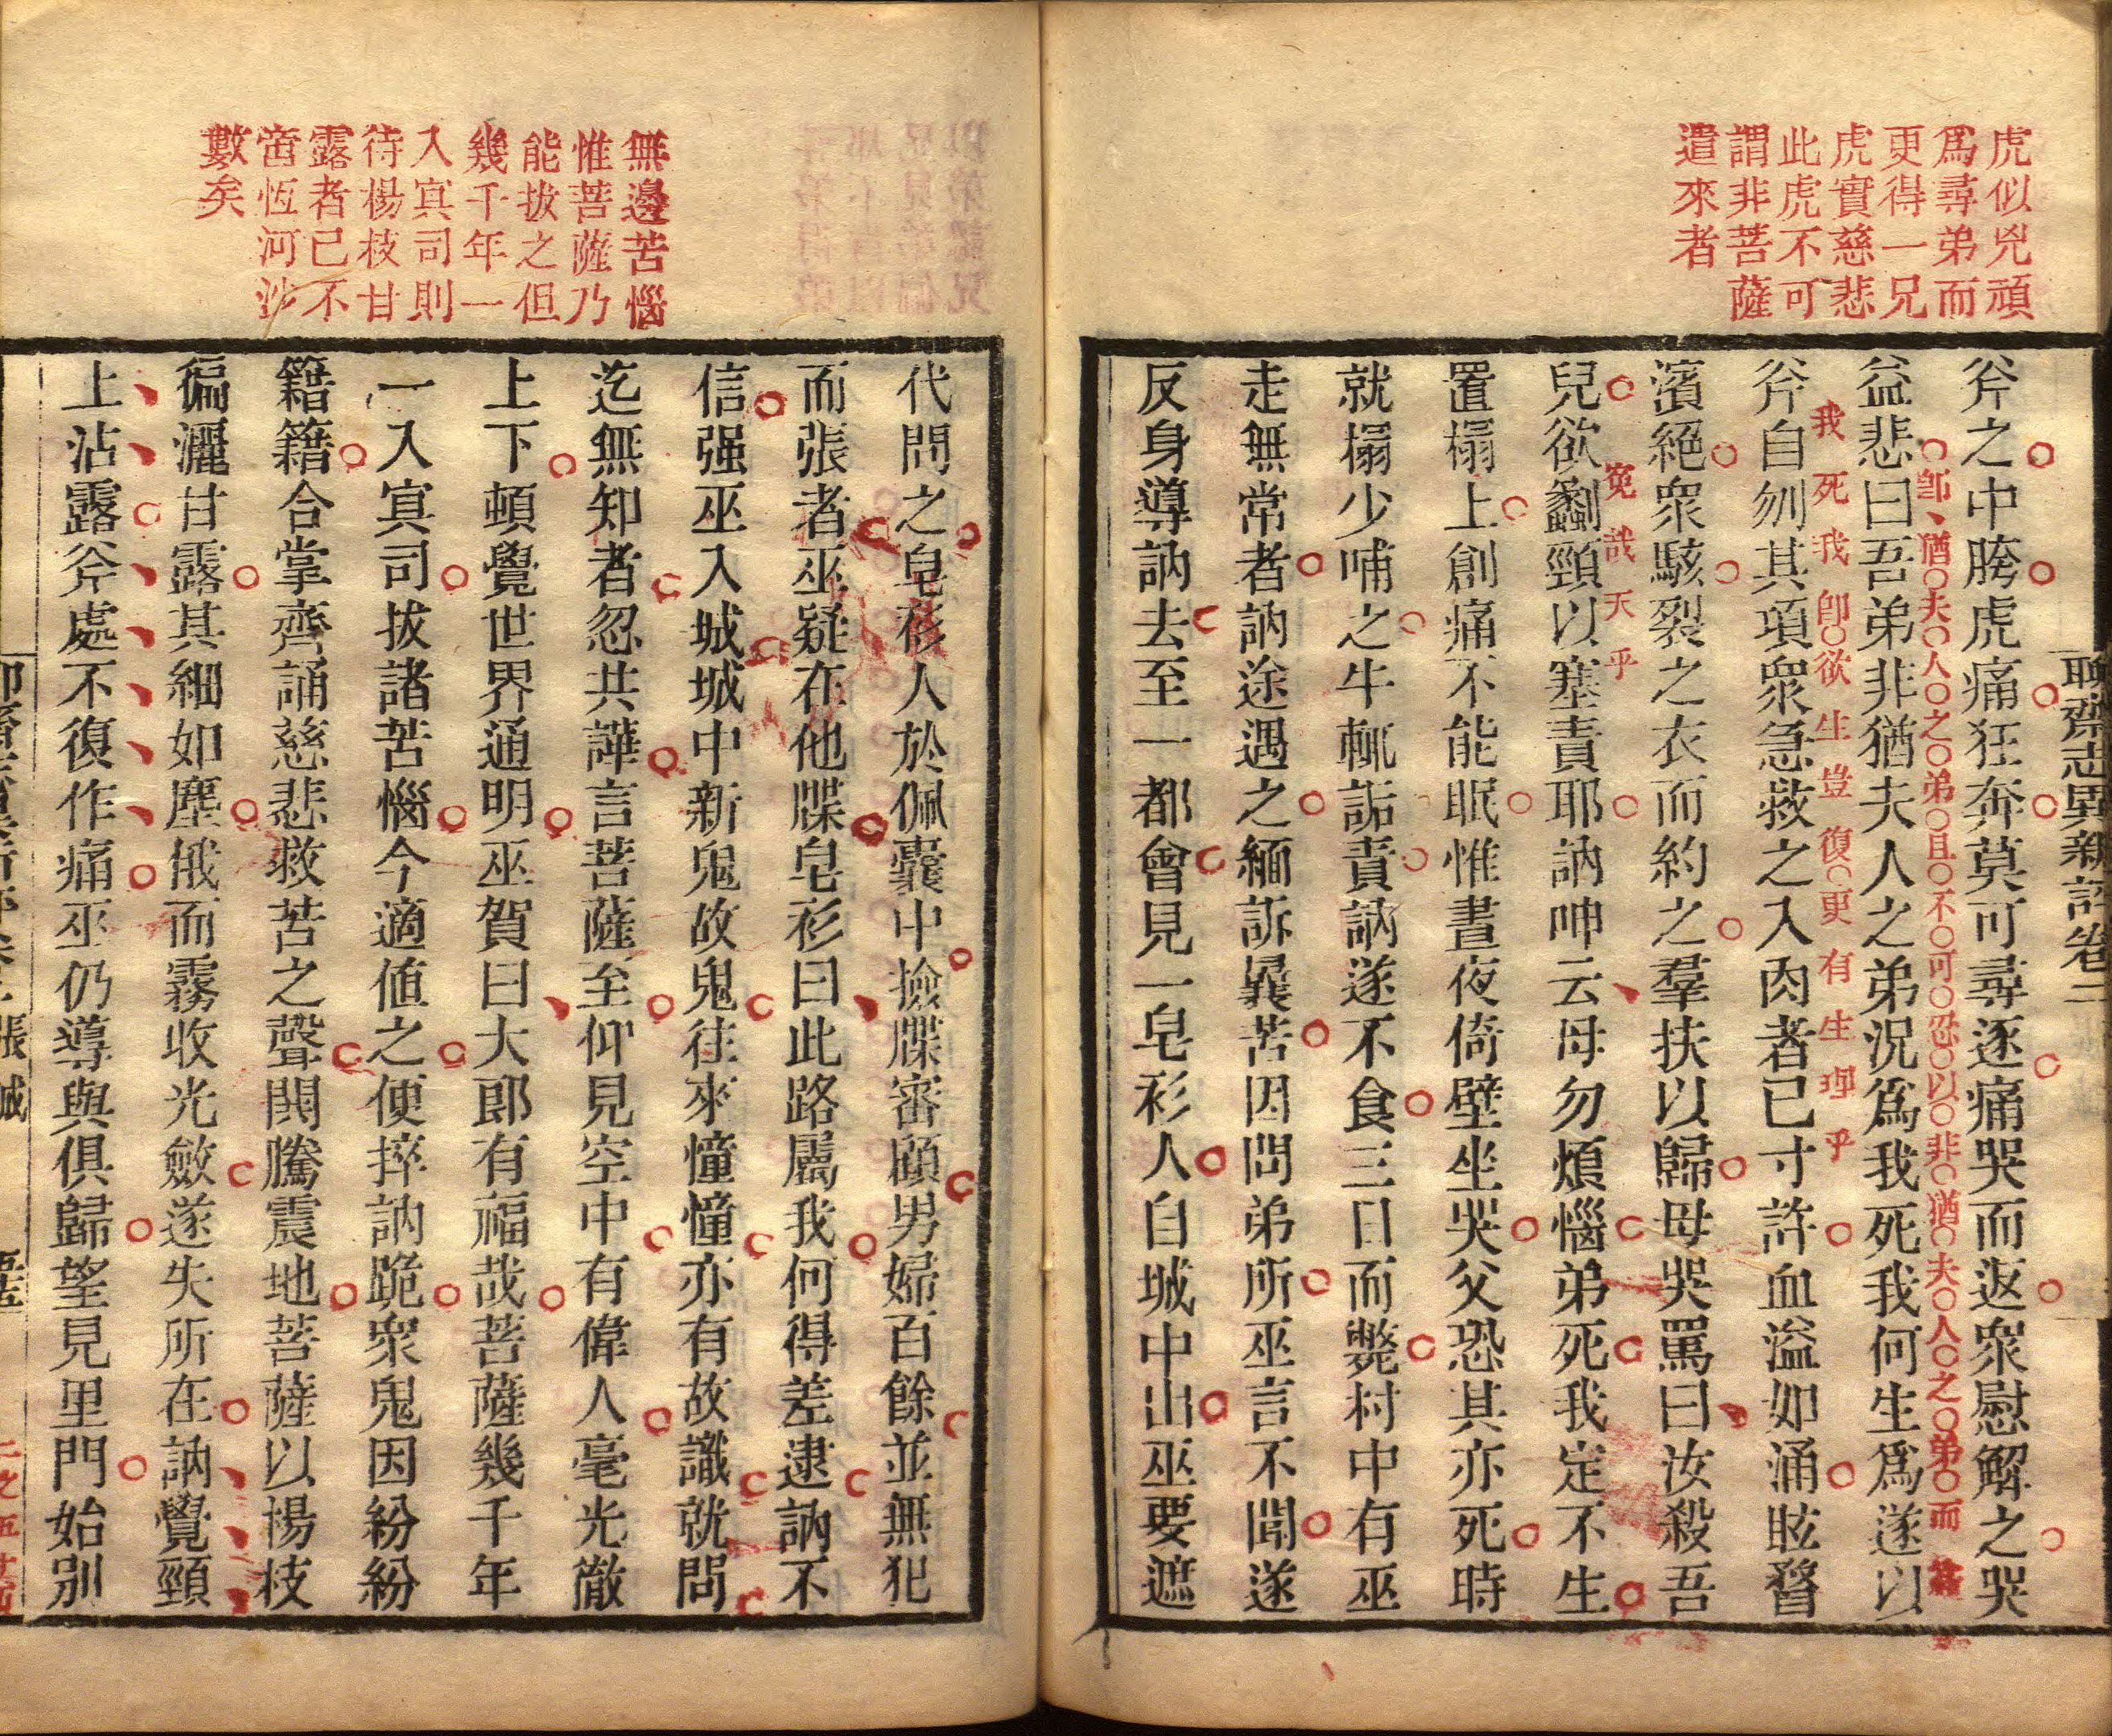 虎似兇頑
為尋弟而
更得一兄
虎實慈悲
此虎不可
謂非菩薩
遣來者
聊齋志異新評卷二
斧之中胯虎痛狂奔莫可尋逐痛哭而返衆慰解之哭
卽猶夫人之弟且不可忍以非猶夫人之弟而
益悲曰吾弟非猶夫人之弟況為我死我何生焉遂以
我死我卽欲生豈復更有生理乎
斧自刎其項衆急救之入肉者已寸許血溢如涌眩瞀
濱絕衆駭裂之衣而約之羣扶以歸母哭罵曰汝殺吾
冤哉天乎
兒欲劙頸以塞責耶訥呻云母勿煩惱弟死我定不生
置榻上創痛不能眠惟晝夜倚壁坐哭父恐其亦死時
就榻少哺之牛輒詬責訥遂不食三日而斃村中有巫
走無常者訥途遇之緬訴曩苦因問弟所巫言不聞遂
反身導訥去至一都會見一皂衫人自城中出巫要遮
無邊苦惱
惟菩薩乃
能拔之但
幾千年一
入冥司則
待楊枝甘
露者已不
啻恆河沙
數矣
代問之皂衫人於佩囊中撿牒審顧男婦百餘並無犯
而張者巫疑在他牒皂衫曰此路屬我何得差逮訥不
信强巫入城城中新鬼故鬼往來憧憧亦有故識就問
迄無知者忽共譁言菩薩至仰見空中有偉人毫光徹
上下頓覺世界通明巫賀曰大郎有福哉菩薩幾千年
一入冥司拔諸苦惱今適值之便捽訥跪衆鬼因紛紛
籍籍合掌齊誦慈悲救苦之聲鬨騰震地菩薩以楊枝
徧灑甘露其細如塵俄而霧收光斂遂失所在訥覺頸
上沾露斧處不復作痛巫仍導與俱歸望見里門始別
張誠